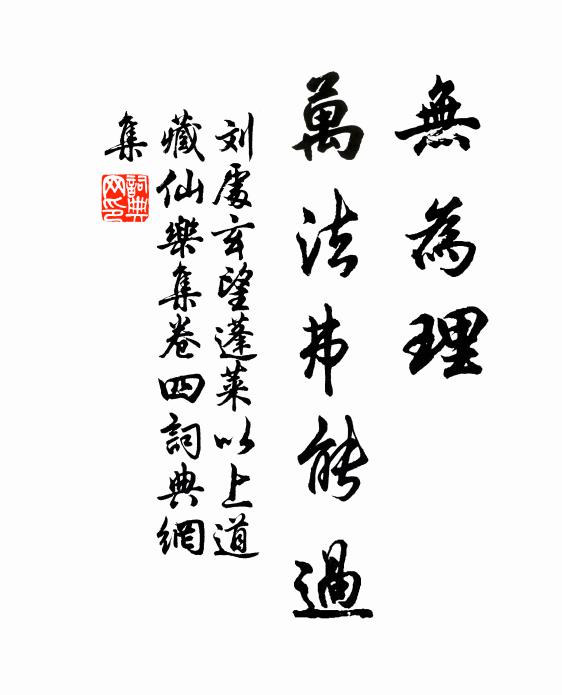 無為理
萬法弗能過
刘處玄望蓬萊以上道
藏仙樂集卷四詞典網
集
詞典
网印